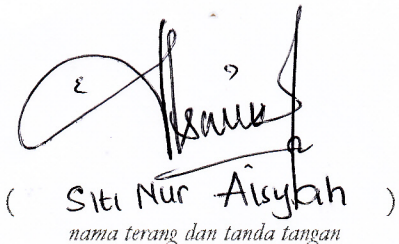 ( Siti Nur Aisyiah )
nama terang dan tanda tangan